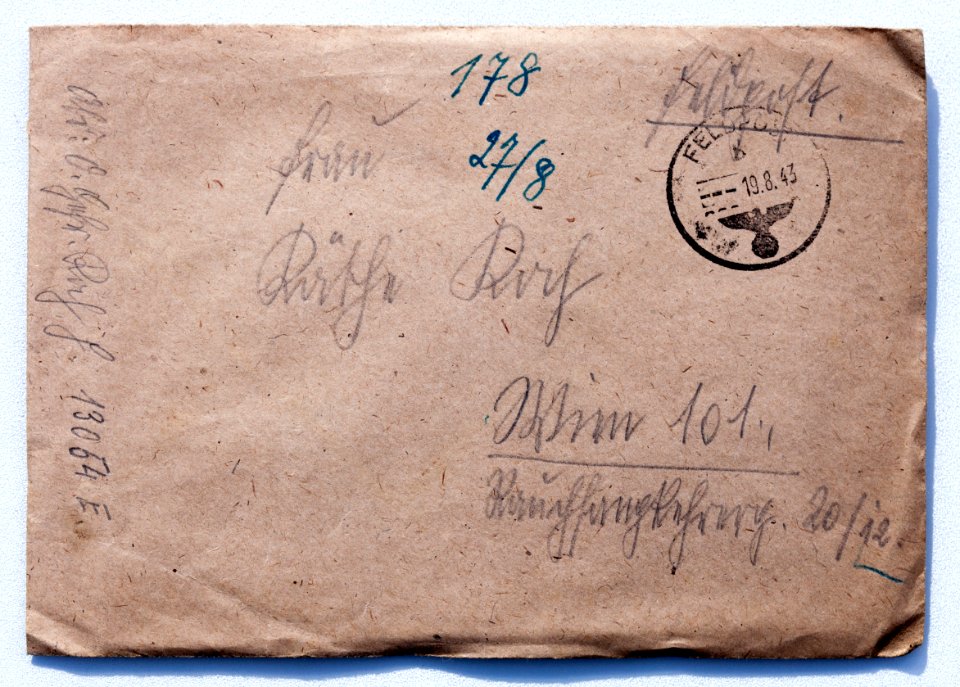 178
27/8
Feldpost.
FELDPOST
b
19.8.43
Frau
Käthe Koch
Wien 101.,
Rauchfangkehrerg. 20/12.
13064 E.